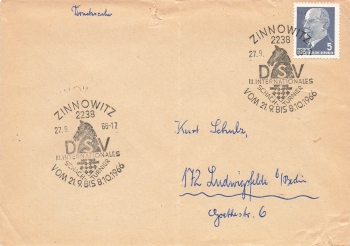 Drucksache
ZINNOWITZ
2238
27.9.
DSV
II. INTERNATIONALES
SCHACH-TURNIER
VOM 21.9. BIS 8.10.1966
5
ZINNOWITZ
2238
27.9. 66-17
DSV
II. INTERNATIONALES
SCHACH-TURNIER
VOM 21.9. BIS 8.10.1966
Kurt Schulz,
172 Ludwigsfelde b/Berlin
Goethestr. 6